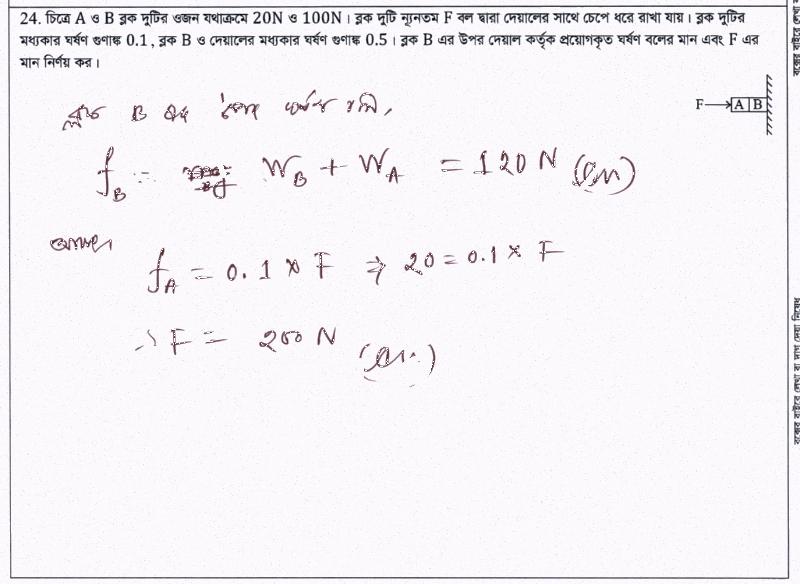 24. চিত্রে A ও B ব্লক দুটির ওজন যথাক্রমে 20N ও 100N। ব্লক দুটি ন্যূনতম F বল দ্বারা দেয়ালের সাথে চেপে ধরে রাখা যায়। ব্লক দুটির
মধ্যকার ঘর্ষণ গুণাঙ্ক 0.1, ব্লক B ও দেয়ালের মধ্যকার ঘর্ষণ গুণাঙ্ক 0.5। ব্লক B এর উপর দেয়াল কর্তৃক প্রয়োগকৃত ঘর্ষণ বলের মান এবং F এর
মান নির্ণয় কর।
F A B
B ঘর্ষণ
f_B = W_B + W_A = 120 N (Ans)
আবার,
f_A = 0.1 × F ⇒ 20 = 0.1 × F
∴ F = 200 N (Ans.)